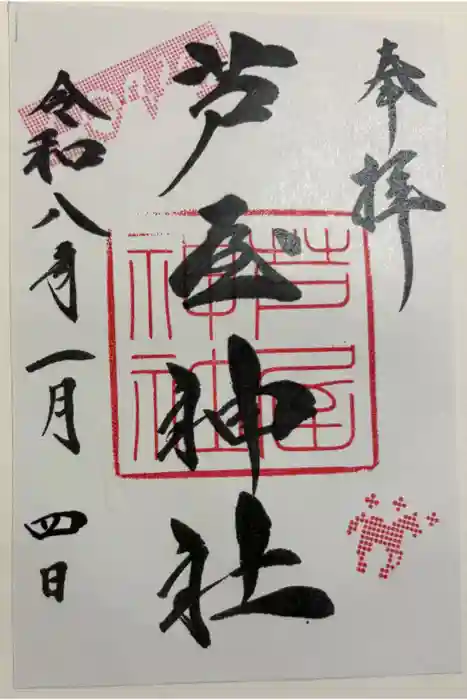 奉拝
芦屋神社
芦屋
神社
令和八年一月四日